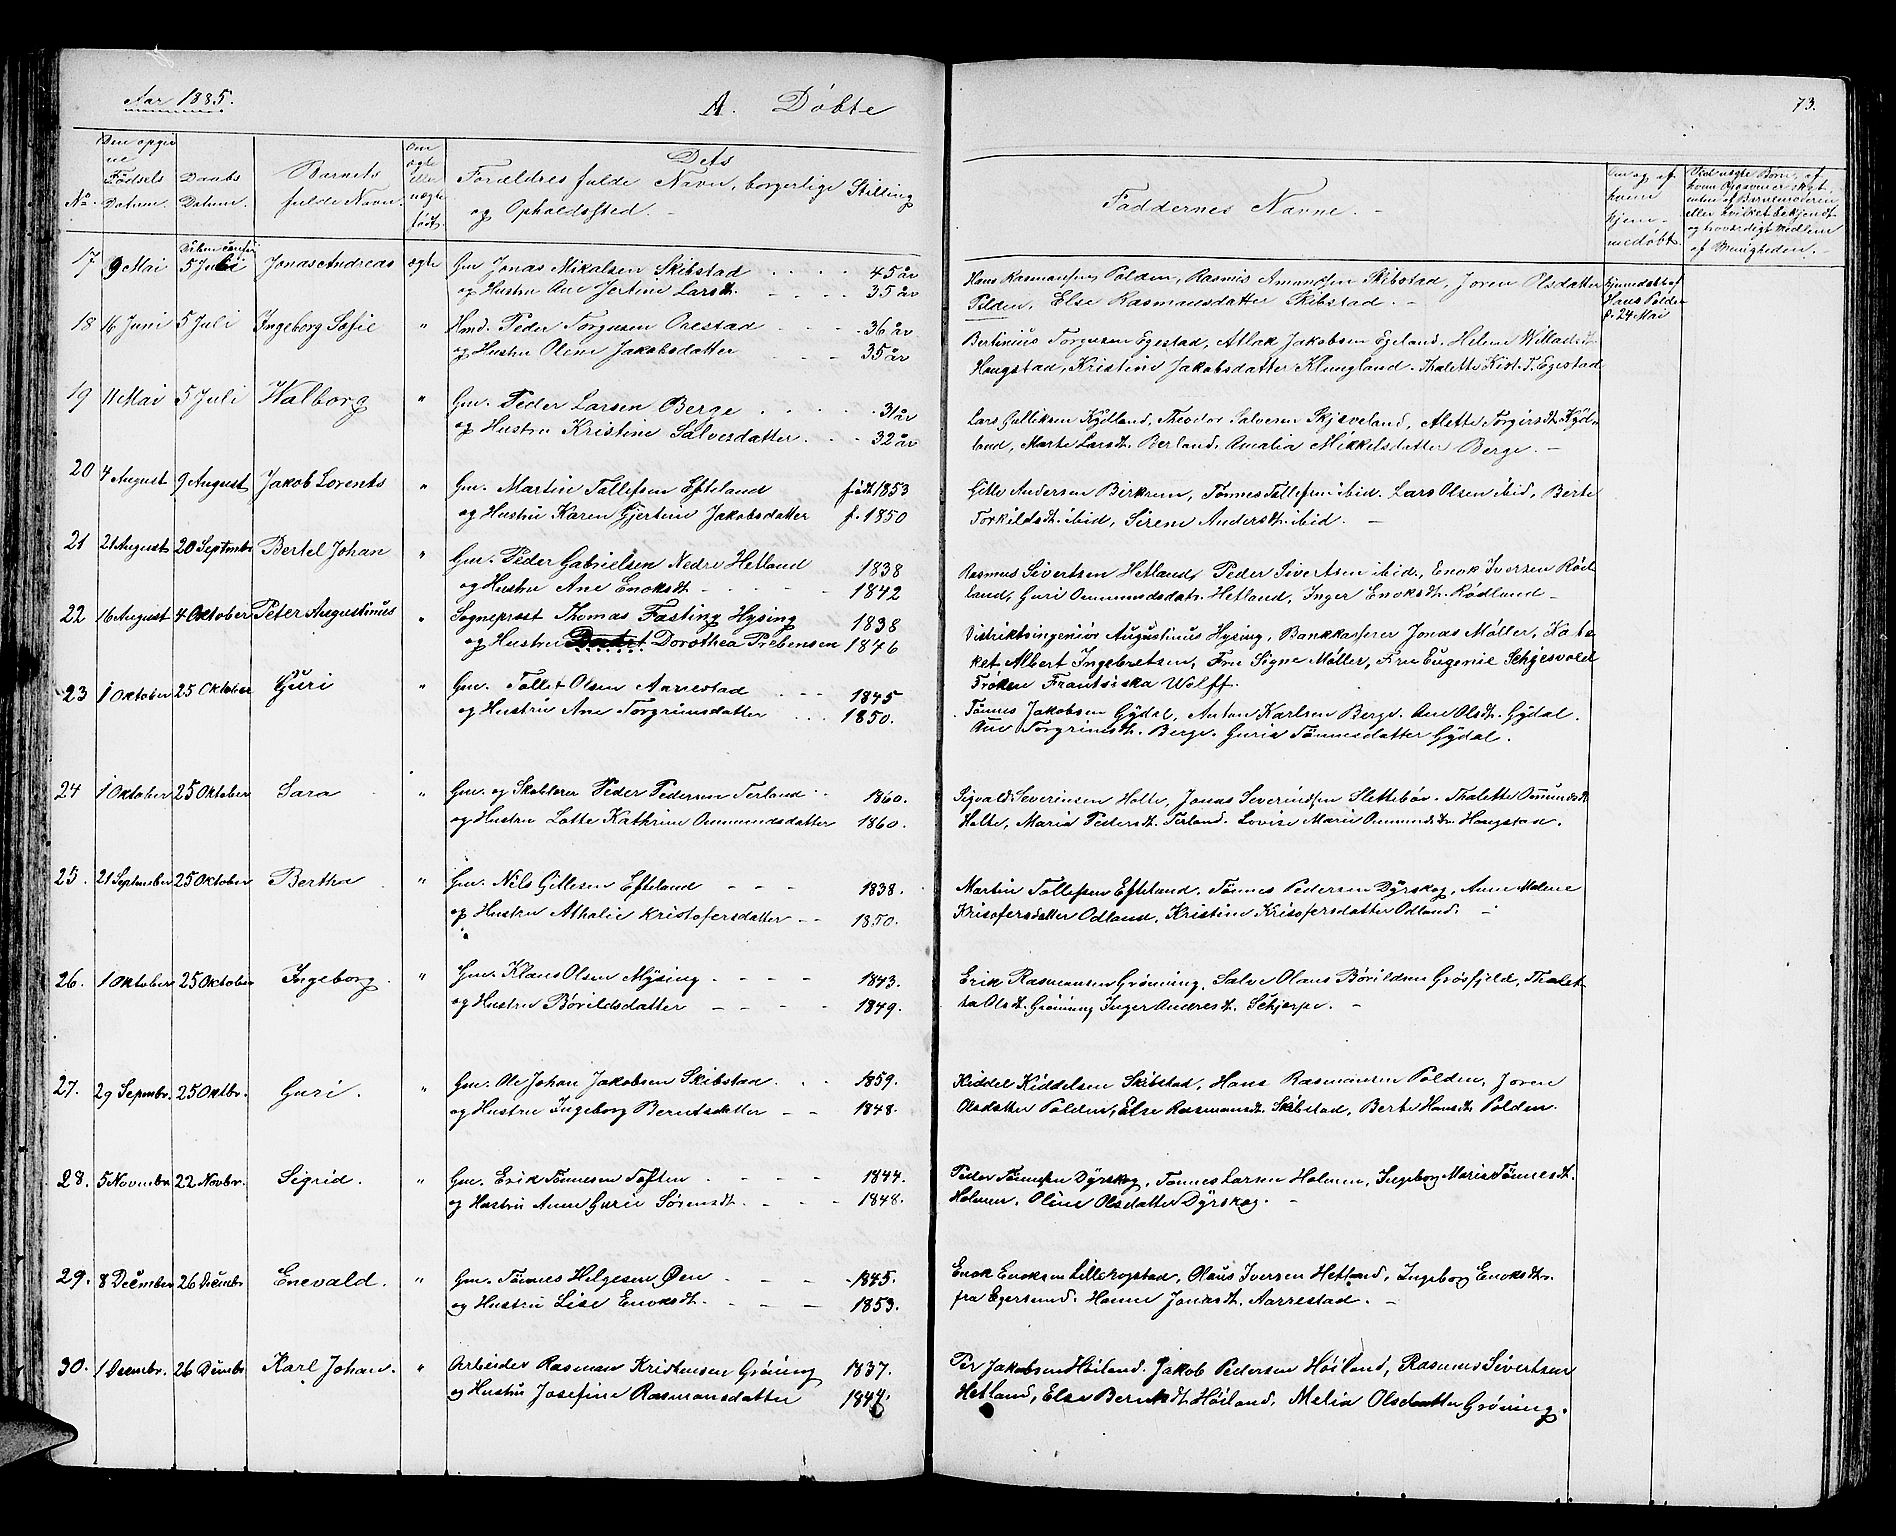 Aar 1885.
A. Døbte
73.
No.
Den opgivne Fødsels Datum.
Daabs Datum.
Barnets fulde Navn.
Om ægte eller uægte født.
Dets Forældres fulde Navn, borgerlige Stilling og Opholdssted.
Faddernes Navne.
Om og af hvem hjemmedøbt.
17 9 Mai 5 Juli Jonas Andreas ægte Gm Jonas Mikalsen Skibstad 45 år
og Hustru Ane Jertine Larsdt. 35 år
Hans Rasmussen Polden, Rasmus Amundsen Skibstad, Joren Olsdatter
Polden, Else Rasmusdatter Skibstad.
hjemdøbt af
Hans Polden
d. 24 Mai
18 16 Juni 5 Juli Ingeborg Sofie " Hmd. Peder Torgusen Orestad 36 år
og Hustru Oline Jakobsdatter 35 år
Bertinius Torgusen Egestad, Atlak Jakobsen Egeland, Helene Willadsdt
Hougstad, Kristine Jakobsdatter Klungland. Thalette Krist. T. Egestad
19 11 Mai 5 Juli Walborg " Gm. Peder Larsen Berge 31 år
og Hustru Kristine Salvesdatter 32 år
Lars Gulliksen Kydland, Theodor Salvesen Skjæveland, Alette Torgersdt. Kyd-
land, Marte Larsdt. Berland, Amalia Mikkelsdatter Berge.
20 4 August 9 August Jakob Lorents " Gm. Martin Tollefsen Efteland født 1853
og Hustru Karen Gjertine Jakobsdatter f. 1850
Gitle Andersen Birkrem, Tønnes Tollefsen ibid. Lars Olsen ibid, Berte
Torkildsdt. ibid, Sirene Andersdt. ibid.
21 21 August 20 Septmbr Bertel Johan " Gm. Peder Gabrielsen Nedre Hetland 1838
og Hustru Ane Enoksdt. 1842
Rasmus Sivertsen Hetland, Peder Sivertsen ibid., Enok Iversen Rød-
land, Guri Ommundsdatr. Hetland, Inger Enoksdt. Rødland
22 16 August 4 Oktober Peter Augustinus " Sogneprest Thomas Fasting Hysing 1838
og Hustru Dorothea Prebensen 1846
Distriktsingeniør Augustinus Hysing, Bankkasserer Jonas Møller, Kate-
ket Albert Ingebretsen, Fru Signe Møller, Fru Eugenie Schjesvold
Frøken Frantsiska Wolff.
23 1 Oktober 25 Oktober Guri " Gm. Tollef Olsen Aarrestad 1845
og Hustru Ane Torgrimsdatter 1850.
Tønnes Jakobsen Gydal, Anton Karlsen Berge. Ane Olsdt. Gydal.
Ane Torgrimsdt. Berge. Guria Tønnesdatter Gydal.
24 1 Oktober 25 Oktober Sara " Gm. og Skolelærer Peder Pedersen Terland 1860.
og Hustru Lotte Kathrine Ommundsdatter 1860.
Sigvald Severinsen Holte, Jonas Severindsen Slettebøv. Thalette Ommundsdt
Holte, Maria Pedersdt. Terland. Lovise Marie Ommundsdtr. Hougstad.
25. 21 September 25 Oktober Bertha " Gm. Nils Gitlesen Efteland 1838.
og Hustru Athalie Kristofersdatter 1850.
Martin Tollefsen Efteland. Tønnes Pedersen Dyrskog, Anne Malene
Krisofersdatter Odland, Kristine Krisofersdatter Odland.
26. 1 Oktober 25 Oktober Ingeborg. " Gm. Klaus Olsen Mysing 1843.
og Hustru Bøvildsdatter 1849.
Erik Rasmussen Grønning, Salve Olaus Bøvildsen Grøsfjeld, Thalet-
ta Olsdt. Grønning Inger Andresdt. Schjerpe.
27. 29 Sepmbr. 25 Oktbr. Guri. " Gm. Ole Johan Jakobsen Skibstad. 1859.
og Hustru Ingeborg Berntsdatter 1848.
Kiddel Kiddelsen Skibstad, Hans Rasmussen Polden, Joren
Olsdatter Polden, Else Rasmusdt. Skibstad, Berte Hansdt. Polden.
28. 5 Novmbr. 22 Novbr. Sigrid. " Gm. Erik Tønnesen Toften 1844.
og Hustru Anne Gurie Sørensdt. 1848.
Peder Tønnesen Dyrskog, Tønnes Larsen Holmen, Ingeborg Marie Tønnesdt.
Holmen, Oline Olsdatter Dyrskog.
29. 8 December 26 Decmbr Enevald. " Gm. Tønnes Helgesen Øen 1845.
og Hustru Lise Enoksdt. 1853.
Enok Enoksen Lillerogstad, Olaus Iversen Hetland, Ingeborg Enoksdtr.
fra Egersund. Hanne Jonasdt. Aarrestad.
30. 1 Desmbr. 26 Decmbr Karl Johan. " Arbeider Rasmus Kristensen Grøning 1837.
og Hustru Josefine Rasmusdatter 1847.
Per Jakobsen Høiland. Jakob Pedersen Høiland, Rasmus Sivertsen
Hetland, Else Berntsdt. Høiland, Malia Olsdatter Grøning.